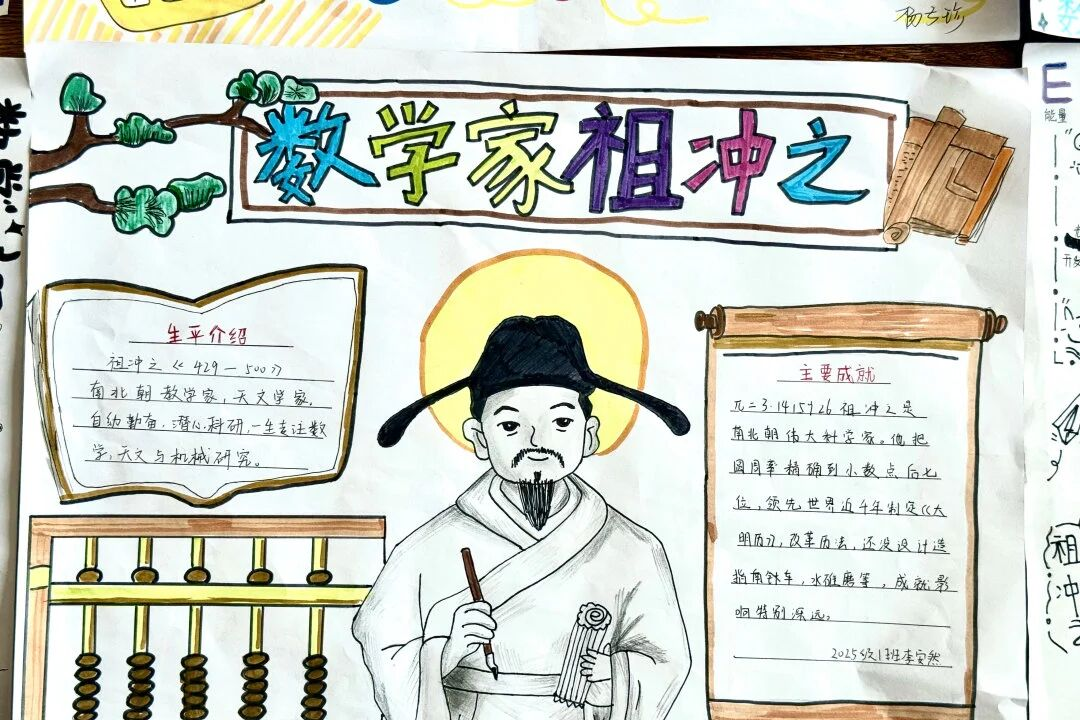 杨
数学家祖冲之
生平介绍
祖冲之《429—500》
南北朝数学家,天文学家。
自幼勤奋,潜心科研,一生专注数
学,天文与机械研究。
主要成就
π=3.1415926祖冲之是
南北朝伟大科学家。他把
圆周率精确到小数点后七
位,领先世界近千年制定《大
明历》,改革历法,还没设计造
指南铁车,水碓磨等,成就影
响特别深远。
2025级1班李安然
E
能量
祖
冲